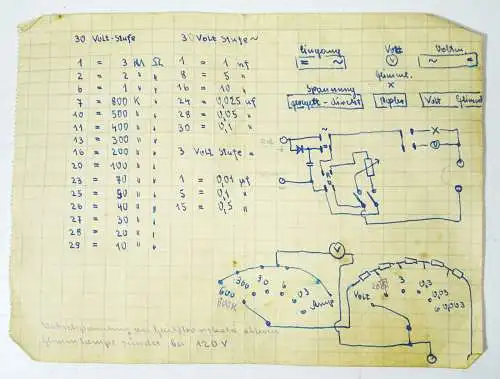 30 Volt-Stufe
1 = 3 MΩ
2 = 2 " "
6 = 1 " "
7 = 800 K "
10 = 500 " "
11 = 400 " "
13 = 300 " "
16 = 200 " "
20 = 100 " "
23 = 70 " "
25 = 50 " "
26 = 40 " "
27 = 30 " "
28 = 20 " "
29 = 10 " "
30 Volt Stufe ~
1 = 1 nf
8 = 5 "
16 = 10 "
24 = 0,025 µf
28 = 0,05 "
30 = 0,1 "
3 Volt Stufe
1 = 0,01 µf
5 = 0,1 "
15 = 0,5 "
Eingang
= ~
Volt
V
Glimml.
X
Voltm.
~ =
Spannung
geregelt - direkt
Volt Glimml
~
=
X
V
V
600
300
30
6
0,3
600K
Amp
Volt
3
0,3
0,03
0,003
120 V